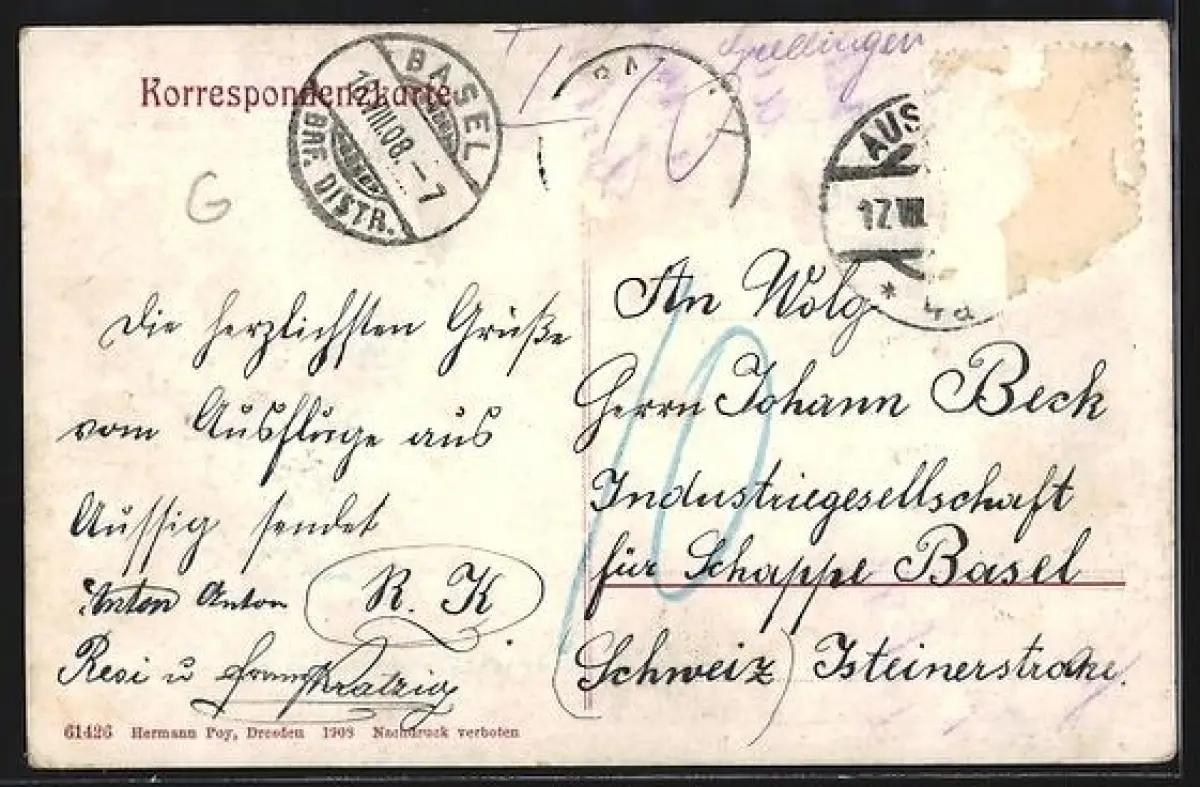 Korrespondenzkarte
BASEL
18.VIII.08.–7
BRF. DISTR.
AUS
17.VIII
* 4a
G
10
Die herzlichsten Grüße
vom Ausfluge aus
Aussig sendet
Anton Anton R. K.
Resi u Kratzig
An Wolg
Herrn Johann Beck
Industriegesellschaft
für Schappe Basel
(Schweiz) Isteinerstraße.
61426 Hermann Poy, Dresden 1908 Nachdruck verboten